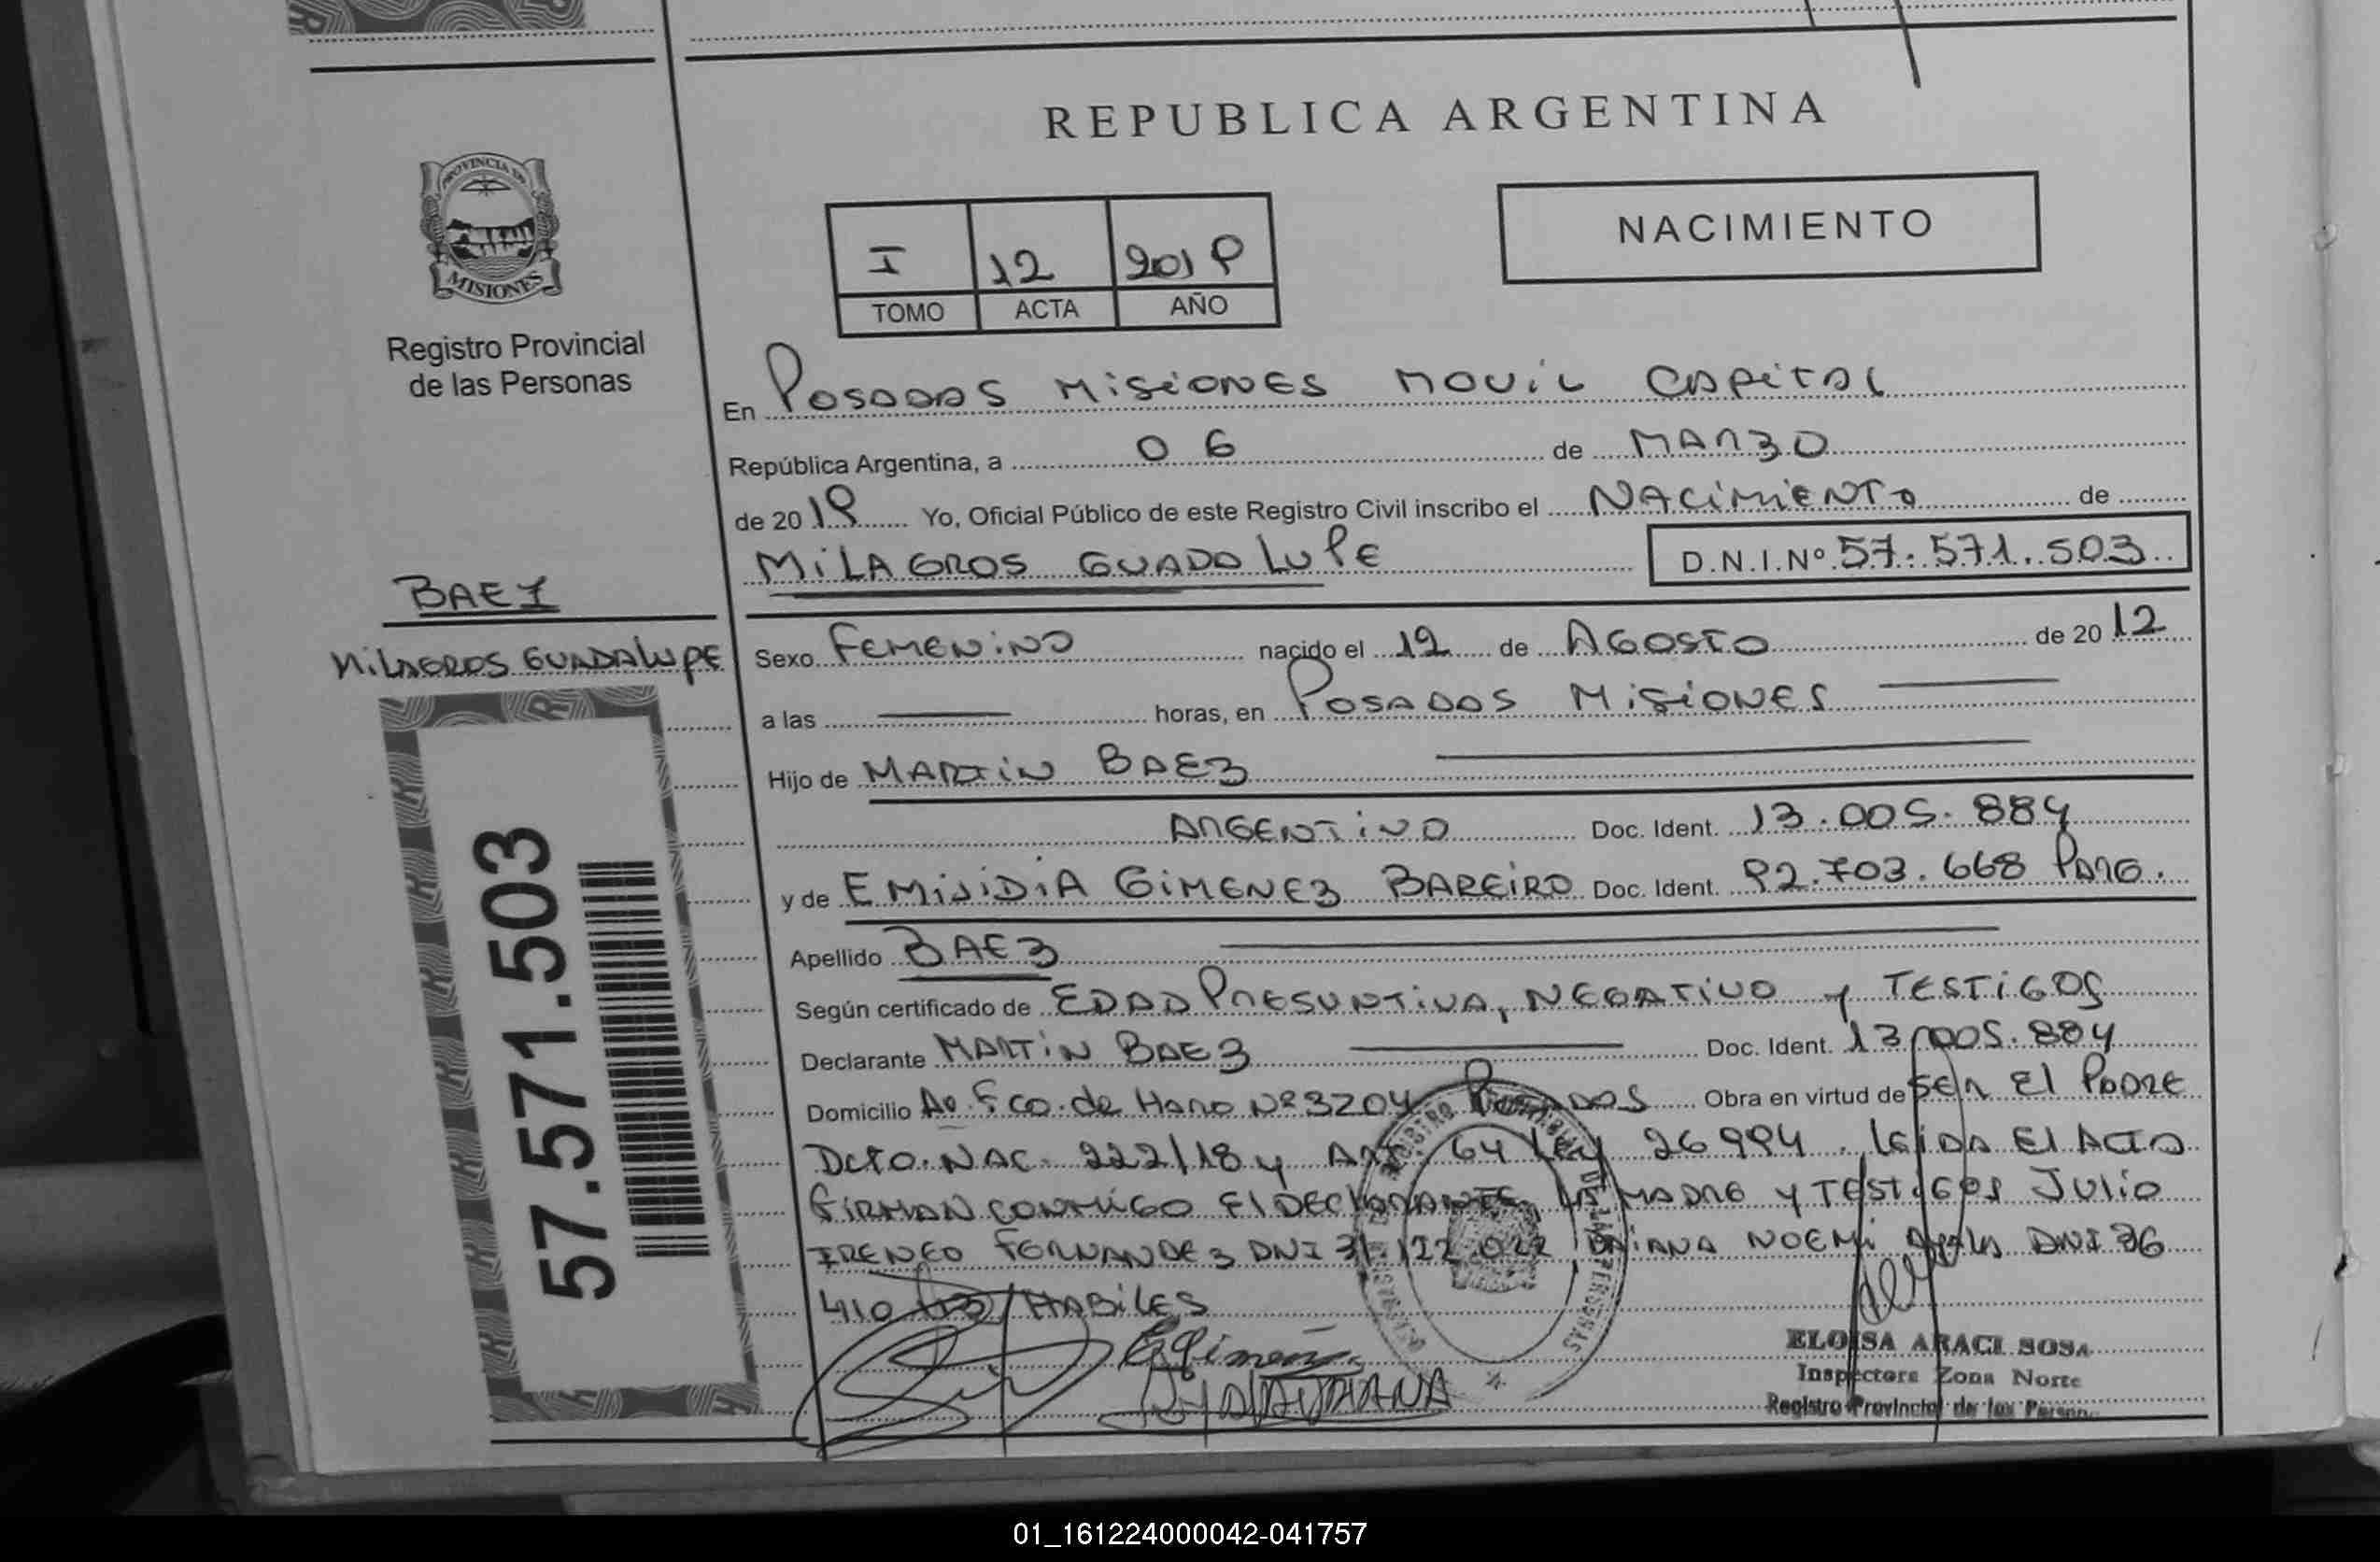 REPUBLICA ARGENTINA
PROVINCIA DE
MISIONES
Registro Provincial
de las Personas
NACIMIENTO
I 12 2019
TOMO ACTA AÑO
En POSADAS MISIONES MOVIL CAPITAL
República Argentina, a 06 de MARZO
de 2019 Yo, Oficial Público de este Registro Civil inscribo el NACIMIENTO de
MILAGROS GUADALUPE D.N.I.Nº 57.571.503
BAEZ
MILAGROS GUADALUPE
Sexo FEMENINO nacido el 12 de AGOSTO de 2012
a las horas, en POSADAS MISIONES
Hijo de MARTIN BAEZ
ARGENTINO Doc. Ident. 13.005.884
y de EMISIDIA GIMENEZ BAREIRO Doc. Ident. 92.703.668 PARG.
Apellido BAEZ
Según certificado de EDAD PRESUNTIVA, NEGATIVO y TESTIGOS
Declarante MARTIN BAEZ Doc. Ident. 13.005.884
Domicilio Av. Fco. de Haro Nº 3204 POSADAS Obra en virtud de SER El PADRE
DCTO. NAC. 222/18 y ART. 64 Ley 26994. leida El Acta
FIRMAN CONMIGO El DECLARANTE, LA MADRE y TESTIGOS JULIO
IRENEO FERNANDEZ DNI 31.122.022 DAIANA NOEMI Ayala DNI 36
410 HABILES
57.571.503
ELOISA ARACI SOSA
Inspectora Zona Norte
Registro Provincial de las Person
01_161224000042-041757